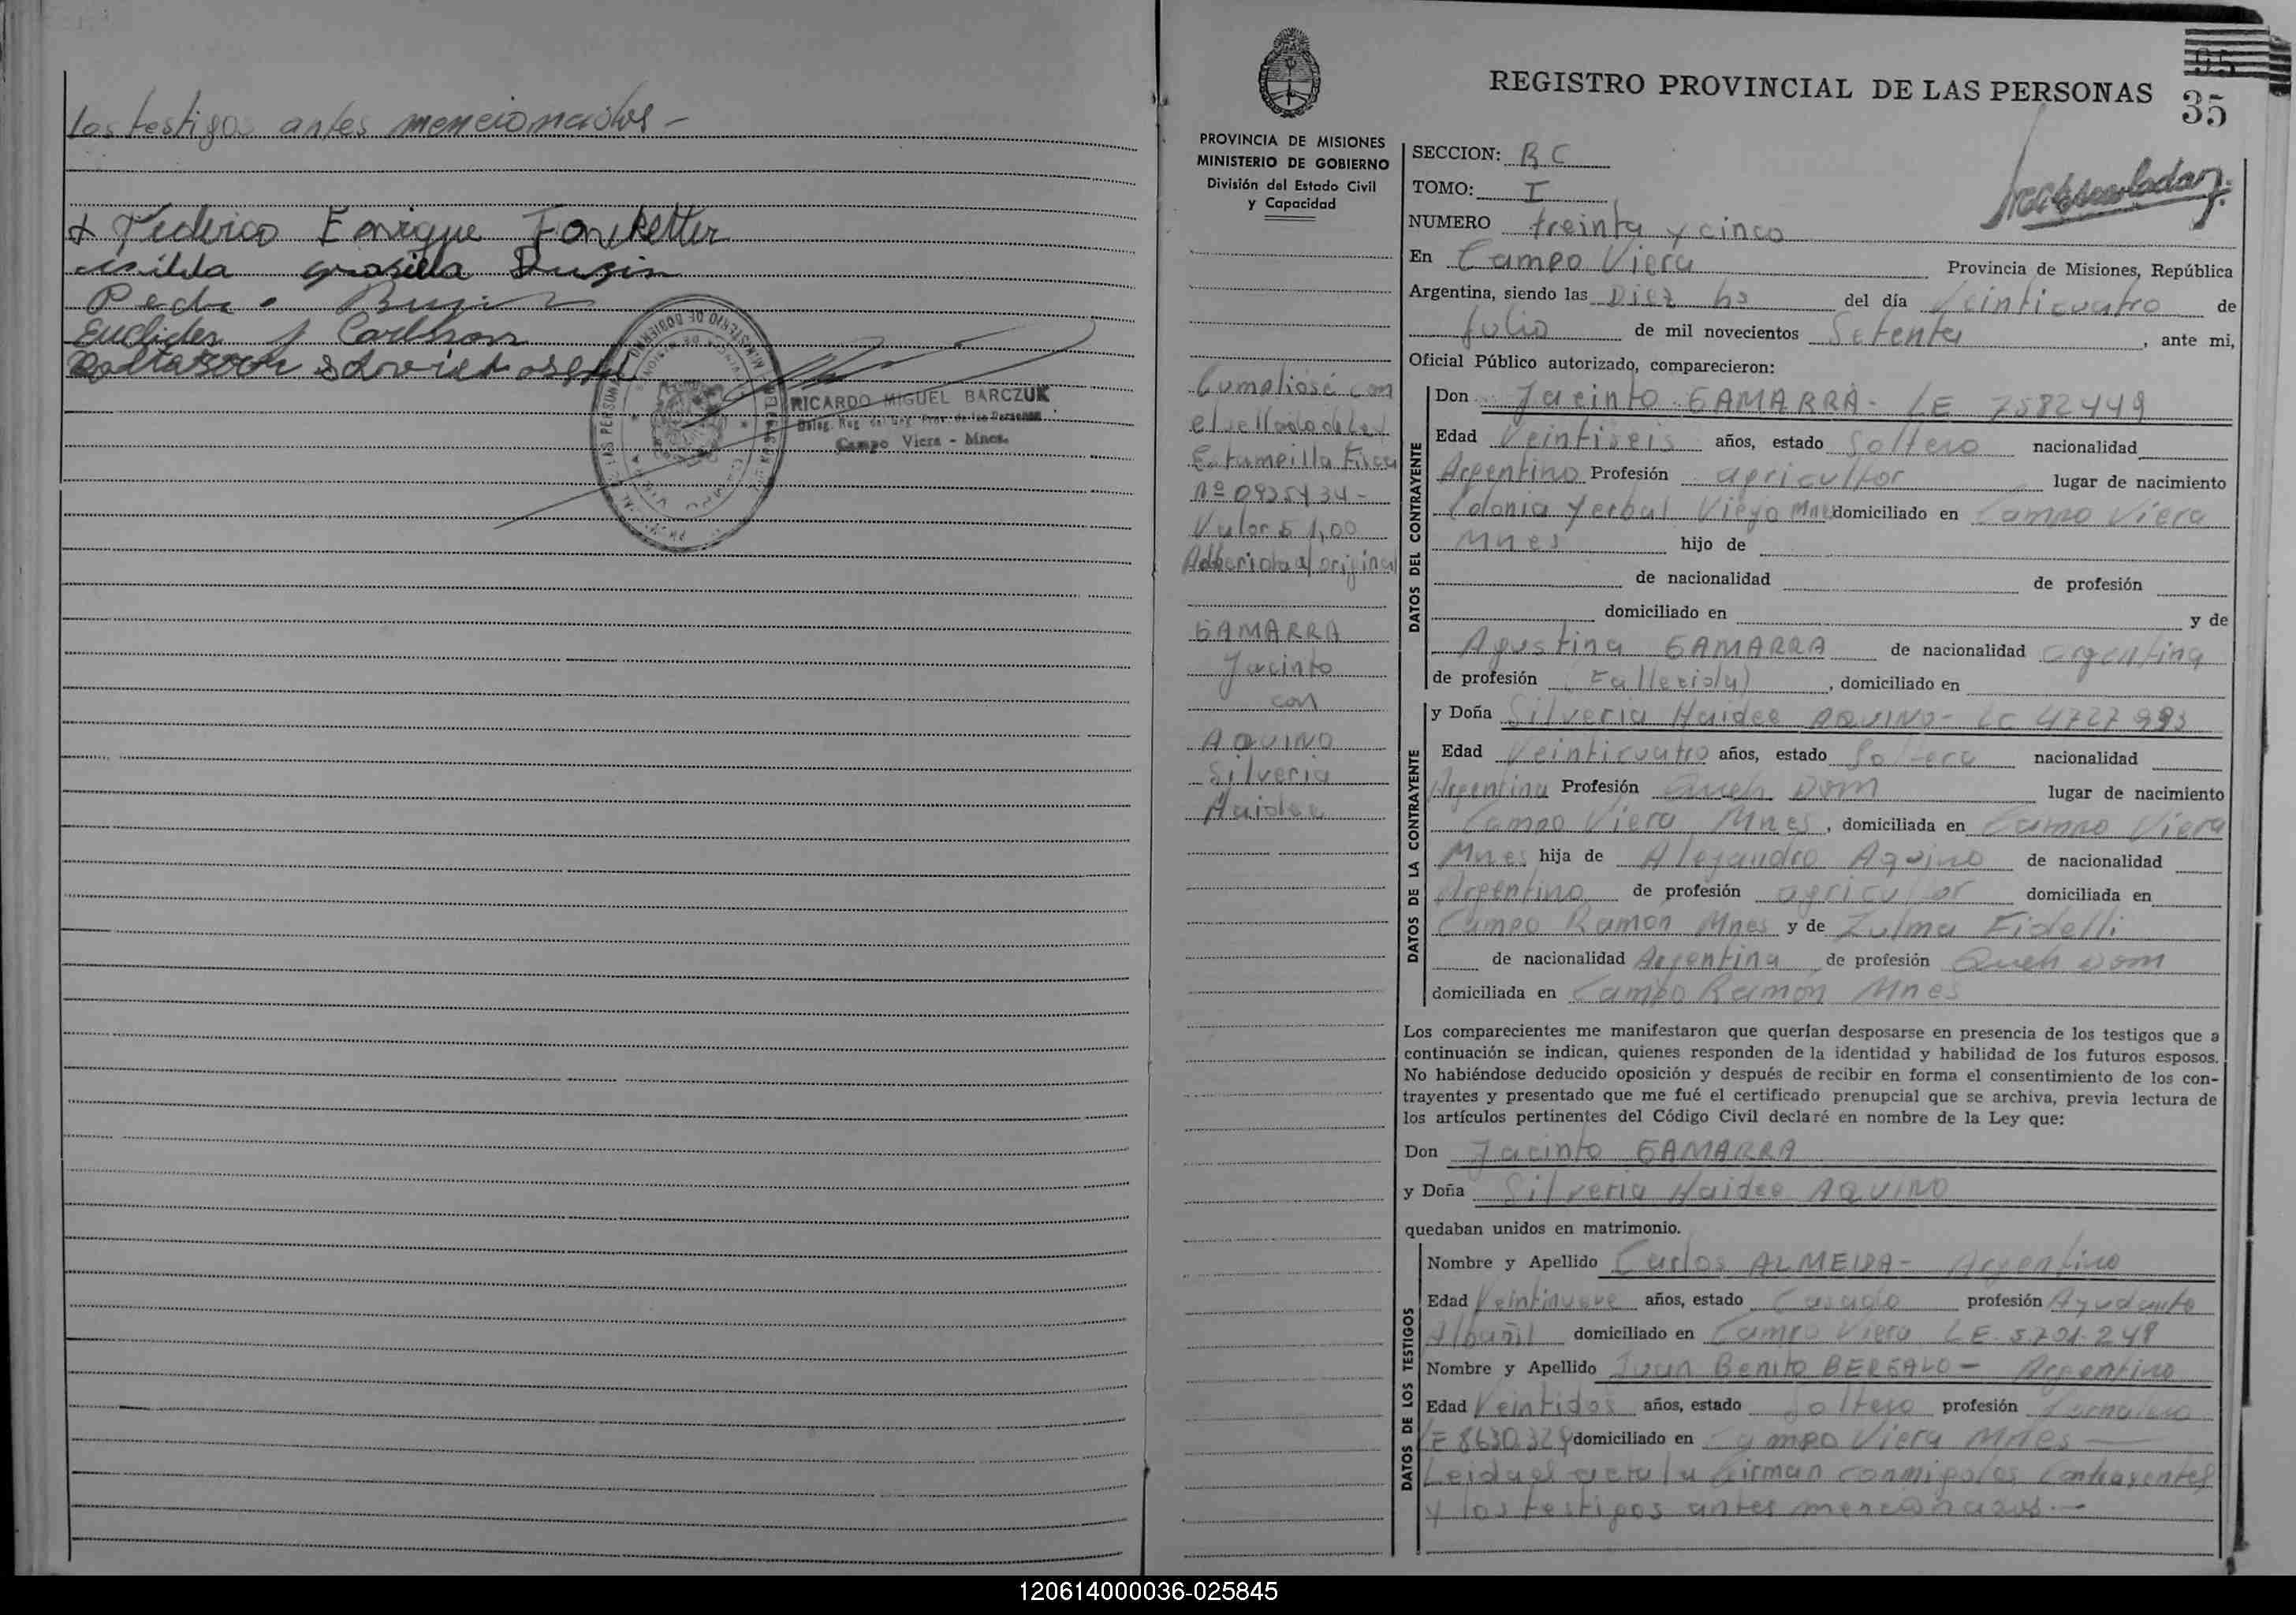 los testigos antes mencionados -
Federico Enrique
Pedro
Euclides Carlsson
MINISTERIO DE GOBIERNO
RICARDO MIGUEL BARCZUK
Campo Viera - Mnes.
REGISTRO PROVINCIAL DE LAS PERSONAS
35
PROVINCIA DE MISIONES
MINISTERIO DE GOBIERNO
División del Estado Civil
y Capacidad
Cumpliose con
el sellado de Ley
Estampilla Fiscal
Nº 0925434-
Valor $ 1,00
Adherida a/ original
GAMARRA
Jacinto
con
AQUINO
Silveria
Haidee
SECCION: BC
TOMO: I
NUMERO treinta y cinco
En Campo Viera Provincia de Misiones, República
Argentina, siendo las Diez hs del día Veinticuatro de
Julio de mil novecientos Setenta, ante mi,
Oficial Público autorizado, comparecieron:
DATOS DEL CONTRAYENTE
Don Jacinto GAMARRA- LE 7582449
Edad Veintiseis años, estado Soltero nacionalidad
Argentino Profesión agricultor lugar de nacimiento
Colonia Yerbal Viejo Mnes domiciliado en Campo Viera
Mnes hijo de
de nacionalidad de profesión
domiciliado en y de
Agustina GAMARRA de nacionalidad argentina
de profesión Fallecida), domiciliado en
DATOS DE LA CONTRAYENTE
y Doña Silveria Haidee AQUINO- LC 4727993
Edad Veinticuatro años, estado Soltera nacionalidad
Argentina Profesión Queh Dom lugar de nacimiento
Campo Viera Mnes, domiciliada en Campo Viera
Mnes hija de Alejandro Aquino de nacionalidad
Argentino de profesión agricultor domiciliada en
Campo Ramón Mnes y de Zulma Fidelli
de nacionalidad Argentina de profesión Queh Dom
domiciliada en Campo Ramón Mnes
Los comparecientes me manifestaron que querían desposarse en presencia de los testigos que a
continuación se indican, quienes responden de la identidad y habilidad de los futuros esposos.
No habiéndose deducido oposición y después de recibir en forma el consentimiento de los con-
trayentes y presentado que me fué el certificado prenupcial que se archiva, previa lectura de
los artículos pertinentes del Código Civil declaré en nombre de la Ley que:
Don Jacinto GAMARRA
y Doña Silveria Haidee AQUINO
quedaban unidos en matrimonio.
DATOS DE LOS TESTIGOS
Nombre y Apellido Carlos ALMEIDA- Argentino
Edad Veintinueve años, estado Casado profesión Ayudante
Albañil domiciliado en Campo Viera LE 5.701.248
Nombre y Apellido Juan Benito BERGALO- Argentino
Edad Veintidos años, estado Soltero profesión Jornalero
LE 8630.329 domiciliado en Campo Viera Mnes
Leida el acta la firman conmigo los Contrayentes
y los testigos antes mencionados.-
120614000036-025845